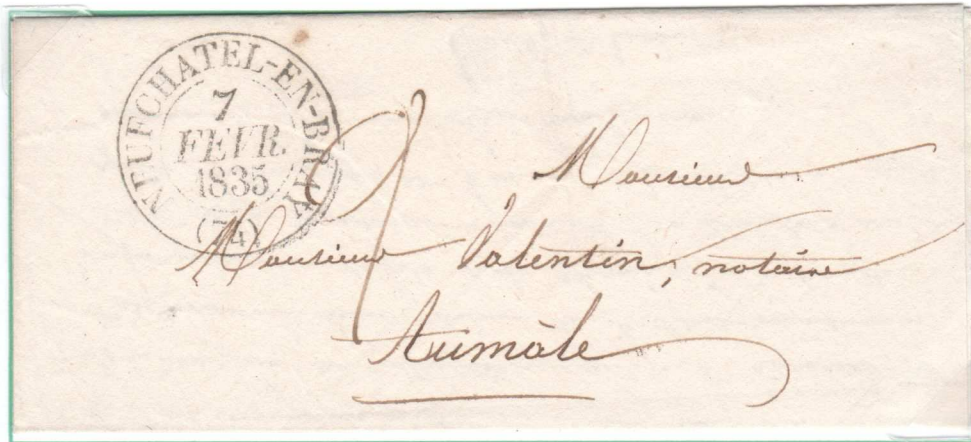 NEUFCHATEL-EN-BRAY
7
FEVR.
1835
(74)
2
Monsieur
Monsieur Valentin, notaire
Aumale